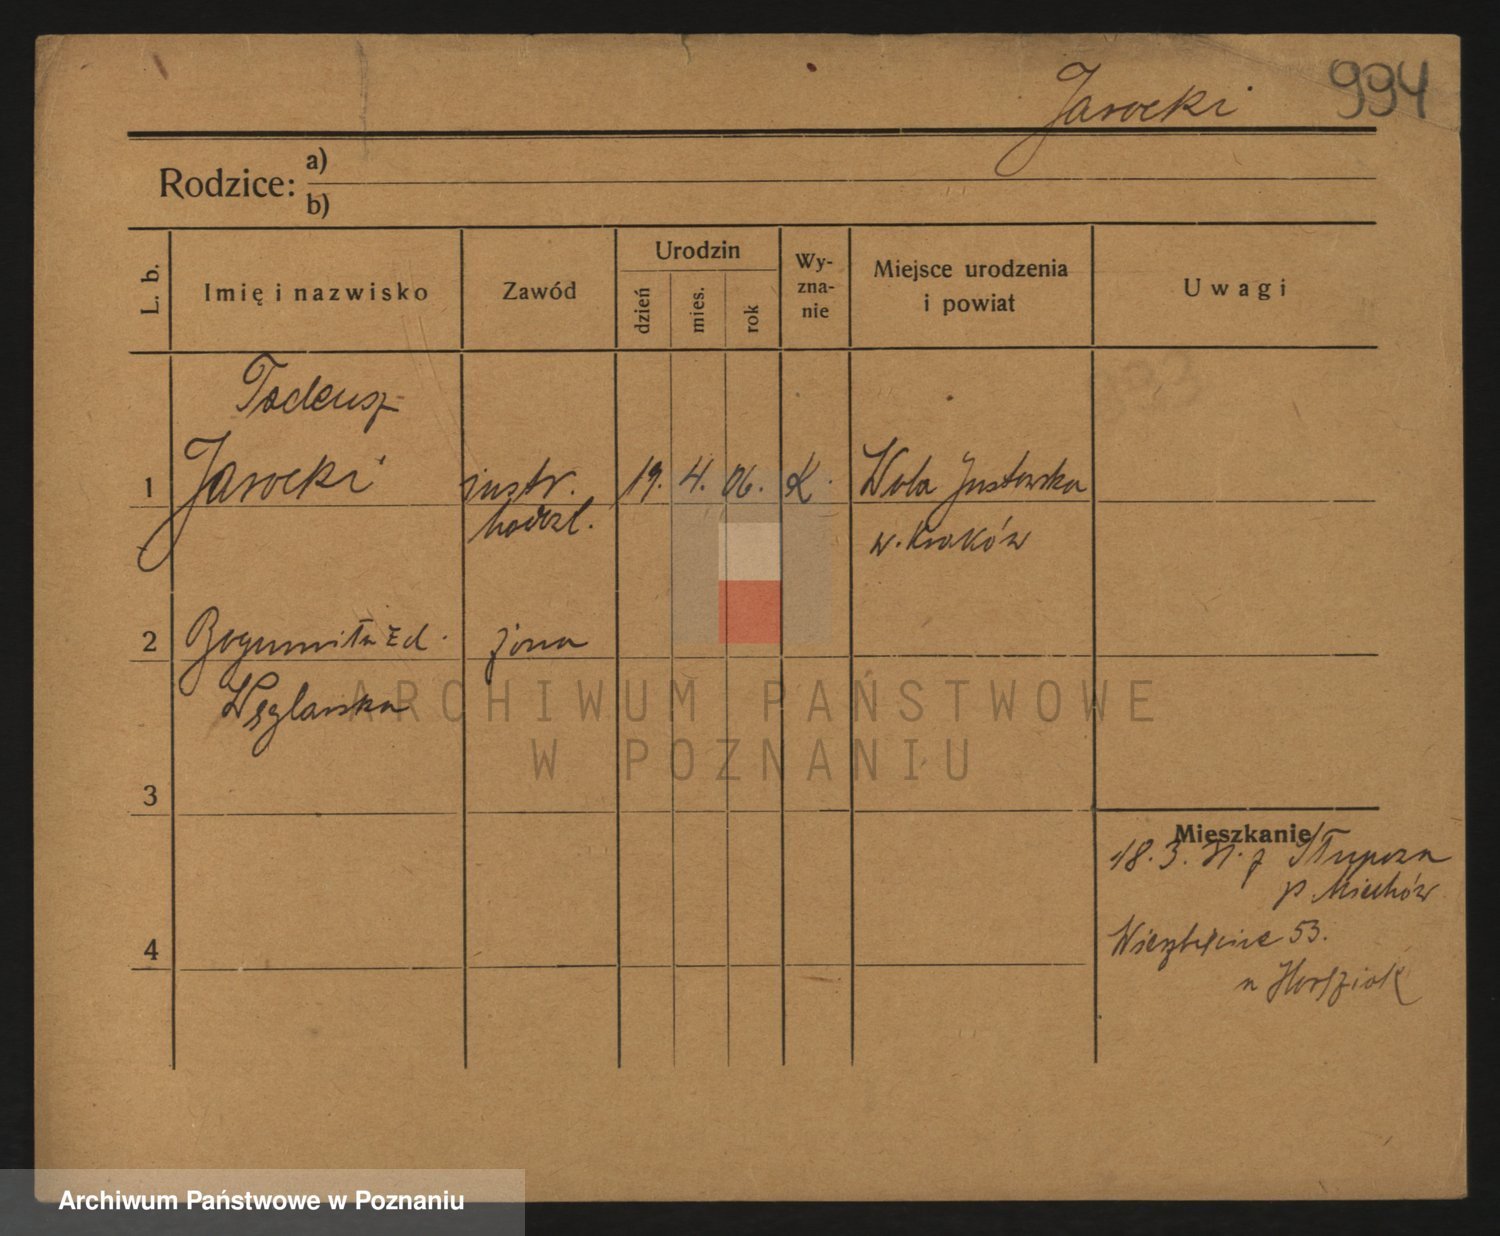 Jarocki 994
Rodzice: a)
b)
L. b. Imię i nazwisko Zawód Urodzin dzień mies. rok Wy-zna-nie Miejsce urodzenia i powiat Uwagi
Tadeusz
1 Jarocki instr. 19. 4. 06. K. Wola Justowska
w. Kraków
2 Bogumiła zd. żona
Węglarska
ARCHIWUM PAŃSTWOWE
W POZNANIU
3
Mieszkanie
18. 3. 31. z Słupoza
p. Miechów
4 Wierzbięcice 53.
u
Archiwum Państwowe w Poznaniu